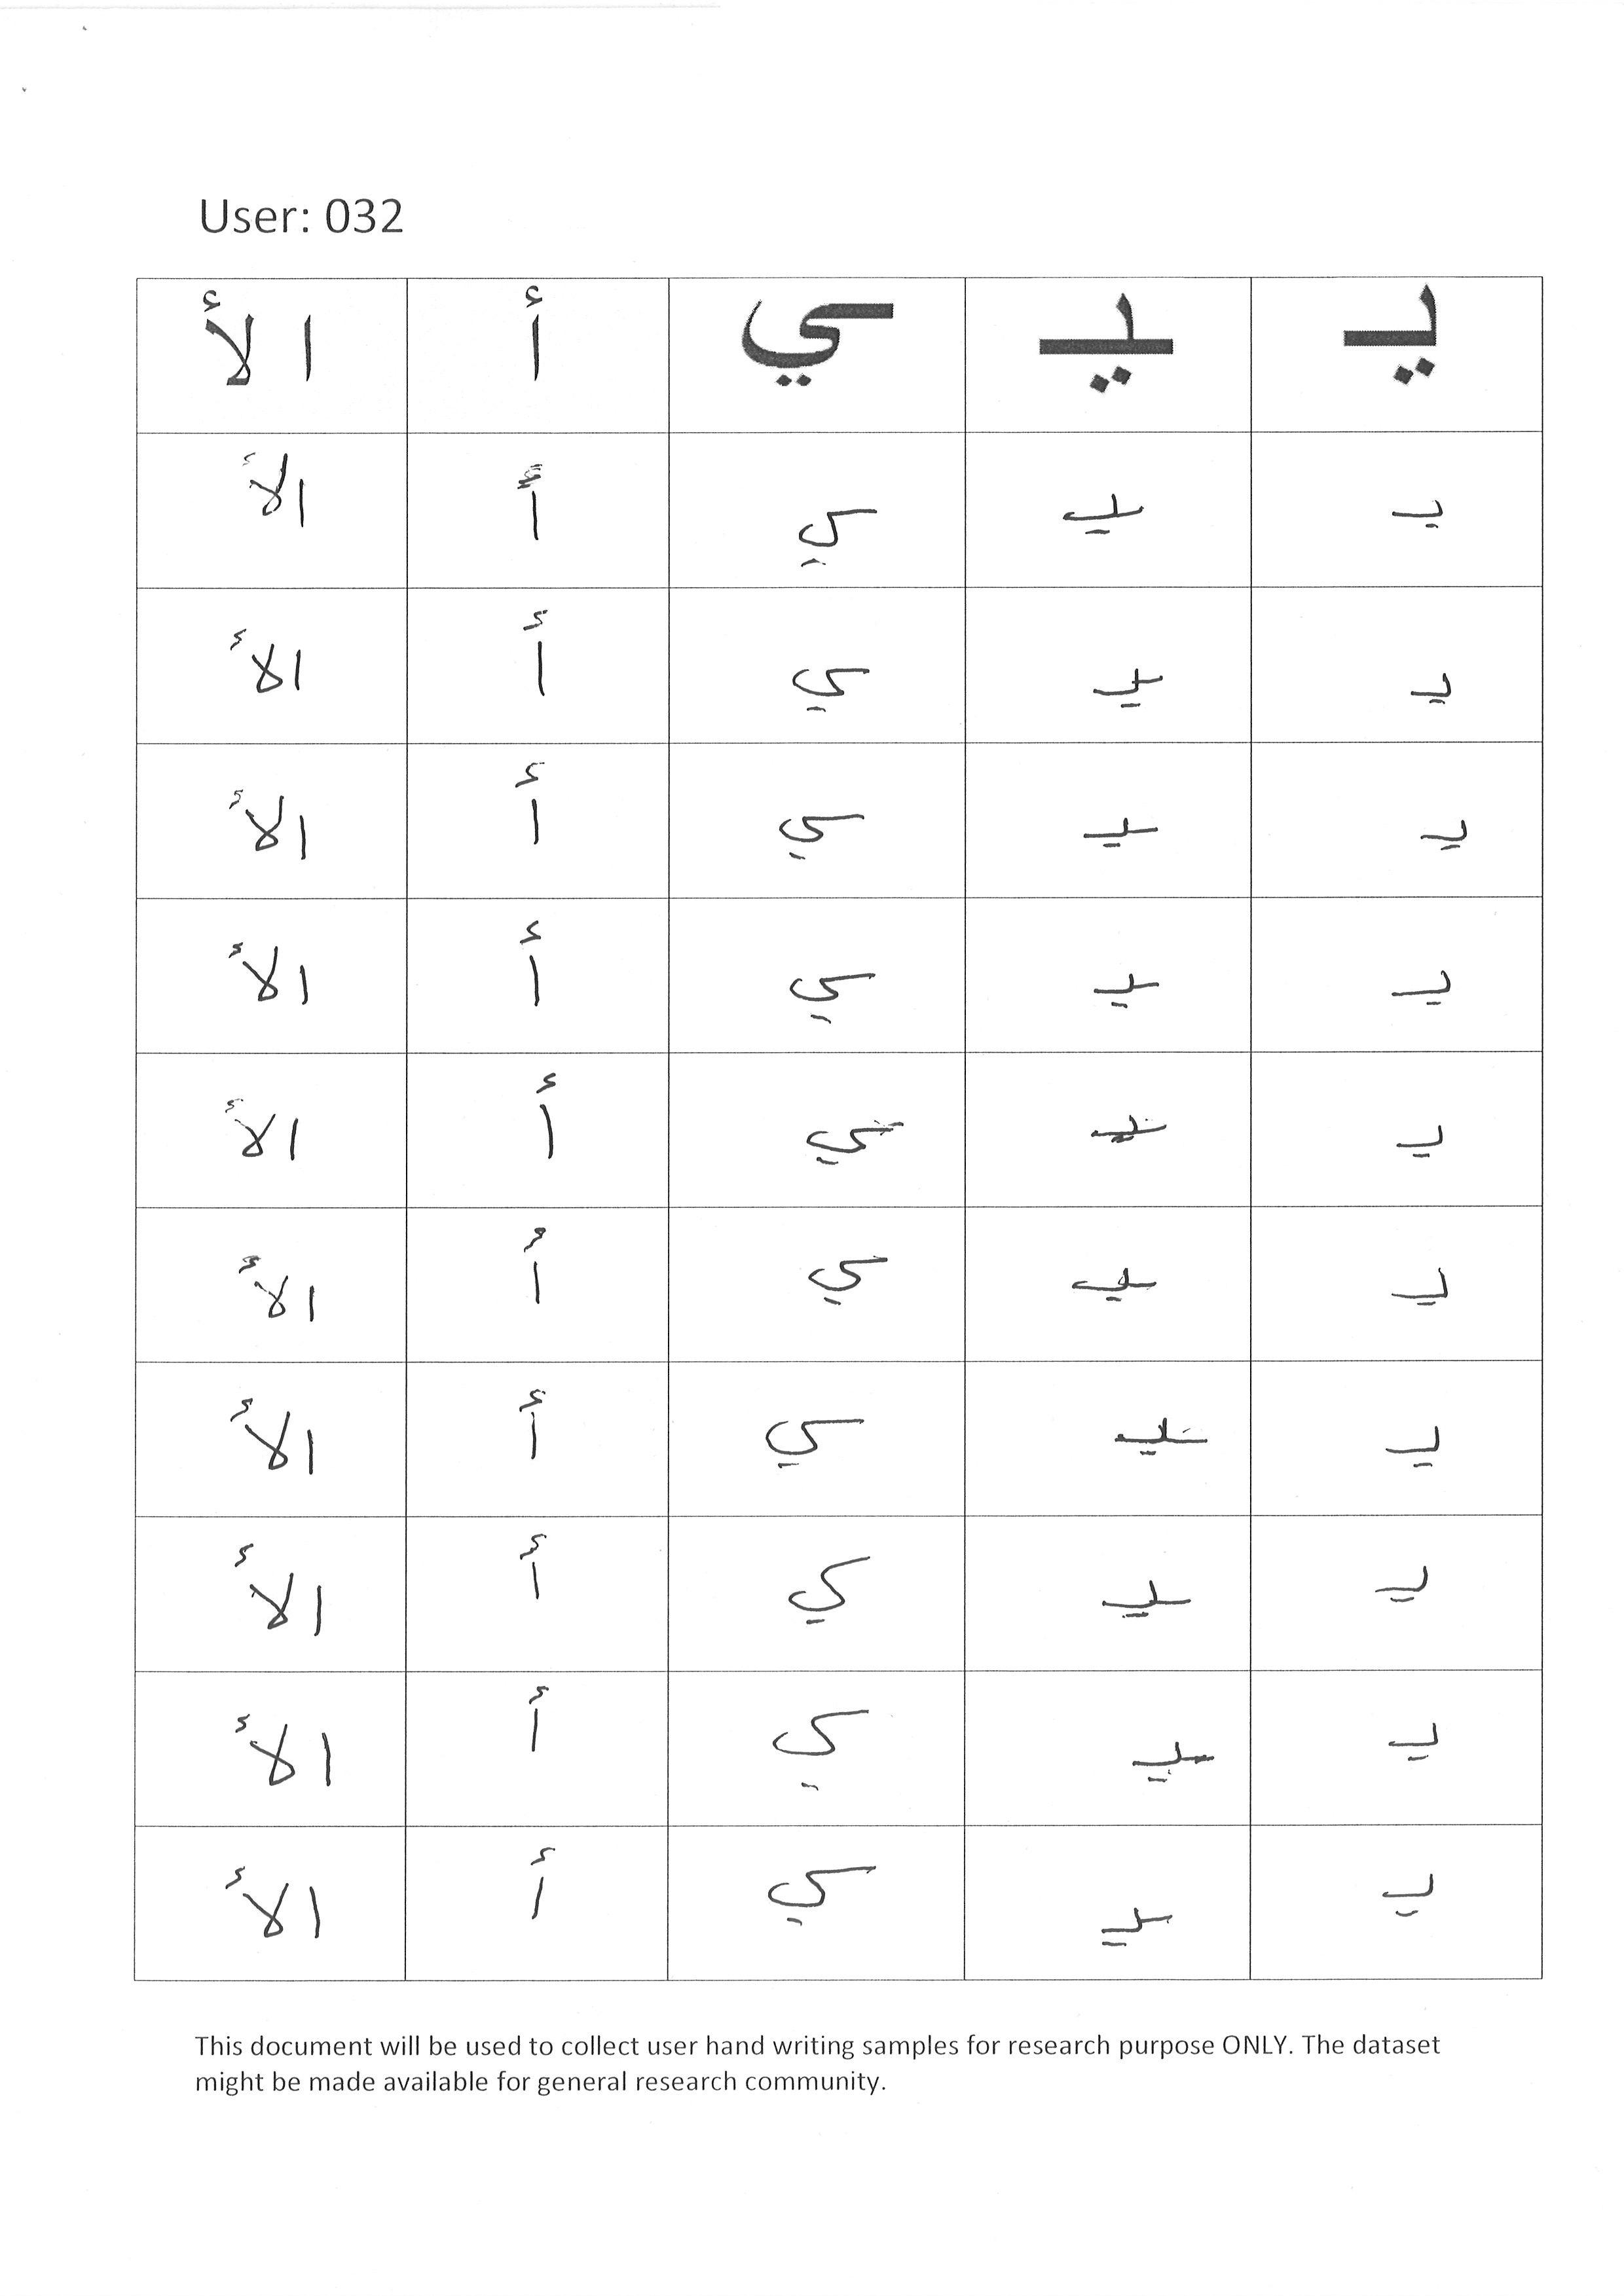 User: 032
يـ ـيـ ـي أ الأ
يـ ـيـ ـي أ الأ
يـ ـيـ ـي أ الأ
يـ ـيـ ـي أ الأ
يـ ـيـ ـي أ الأ
يـ ـيـ ـي أ الأ
يـ ـيـ ـي أ الأ
يـ ـيـ ـي أ الأ
يـ ـيـ ـي أ الأ
يـ ـيـ ـي أ الأ
يـ ـيـ ـي أ الأ
This document will be used to collect user hand writing samples for research purpose ONLY. The dataset
might be made available for general research community.